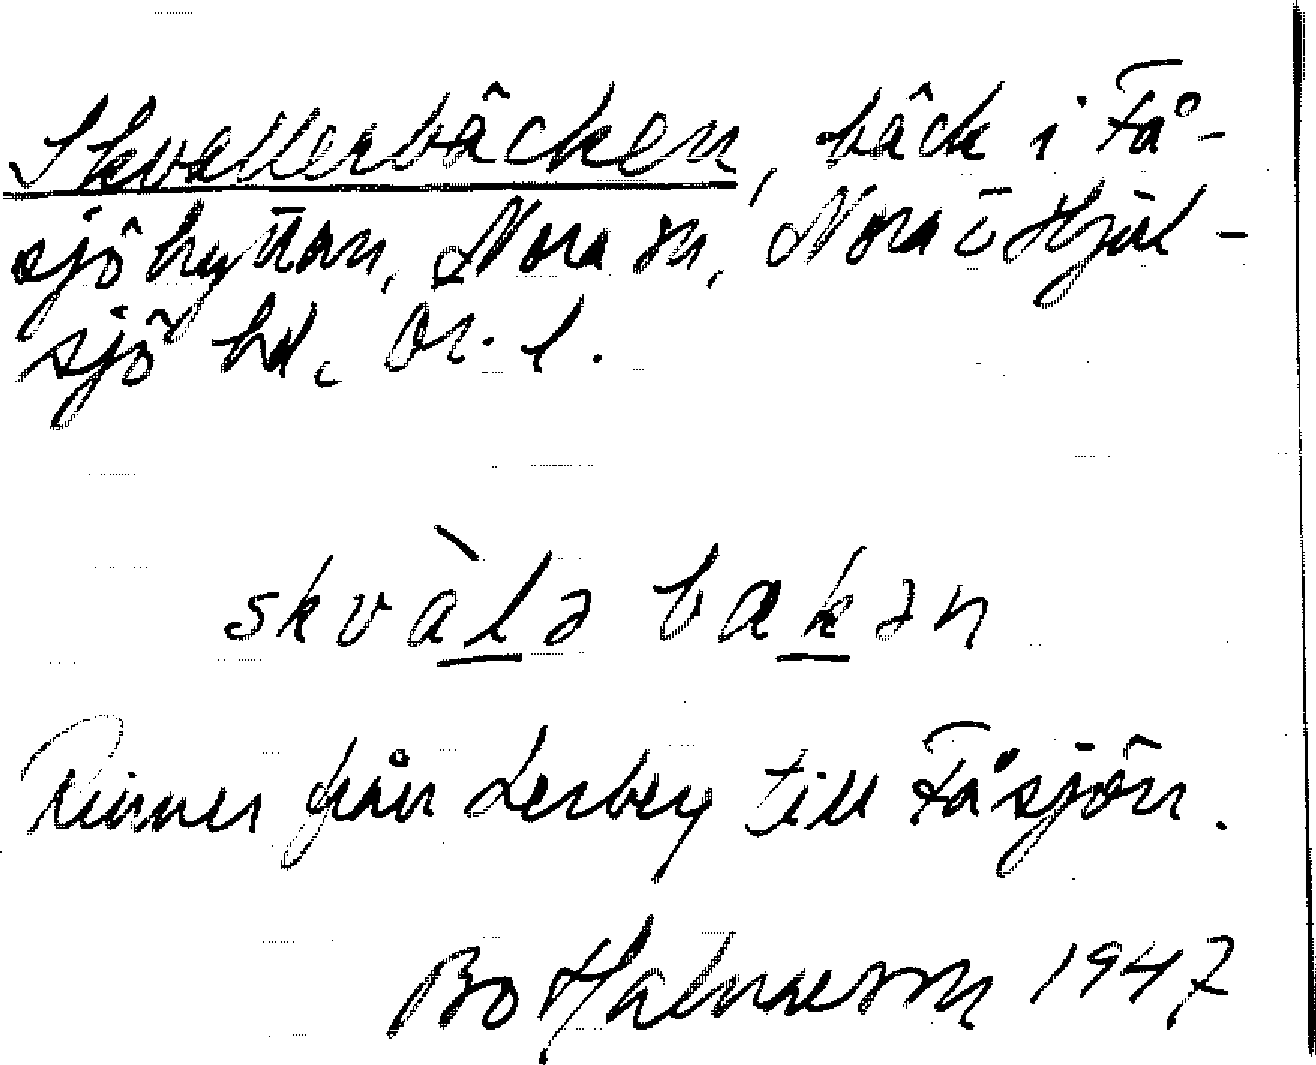 Skvallerbäcken, bäck i Få-
sjöhyttan, Nora sn, Nora o Hjul-
sjö hd, Ör. l.
skvàlə bakən
Rinner från Lerbey till Fåsjön.
Bo 1947